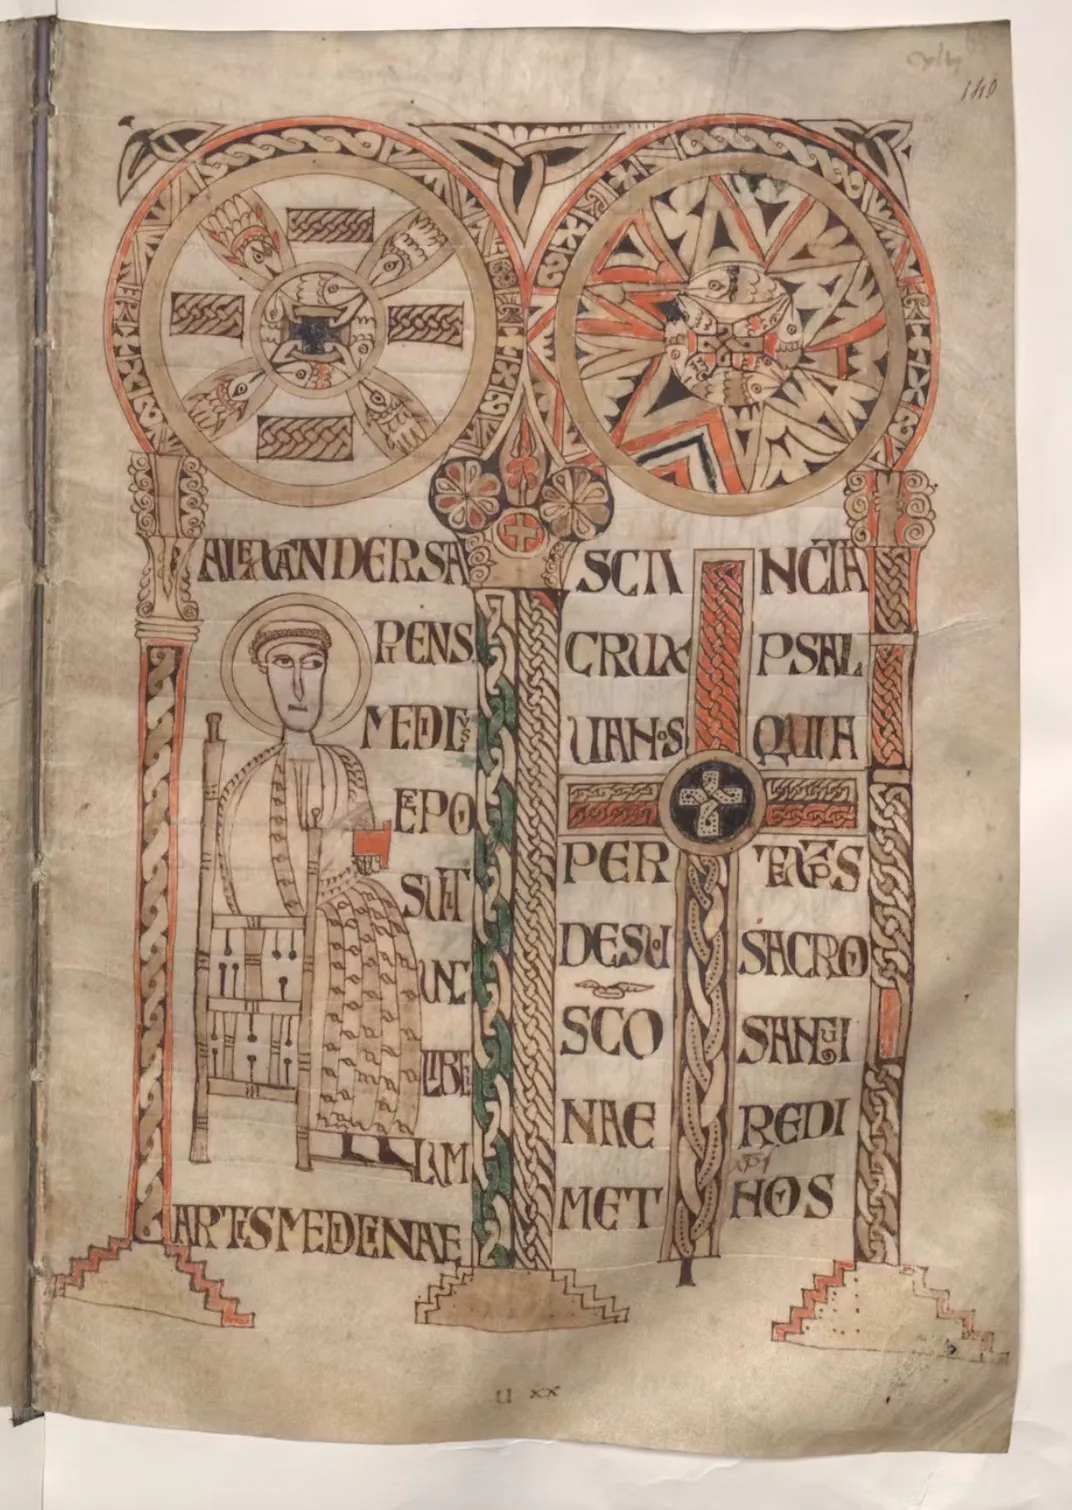 140
ALEXANDER SA
PIENS
MEDICUS
EPO
SUIT
UNC
LIBE
LUM
ARTIS MEDICINAE
SCA
CRUX
UANOS
PER
DESU
SCO
NAE
MET
NC̄IA
PSAL
QUIA
TE XP̄S
SACRO
SANGUI
REDI
NOS
U XX